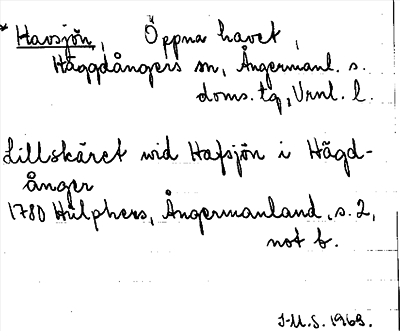 * Havsjön, Öppna havet,
Häggdångers sn, Ångermanl. s.
doms. tg, Vrnl. l.
Lillskäret wid Hafsjön i Hägd-
ånger
1780 Hülphers, Ångermanland, s. 2,
not b.
J-U.S. 1969.